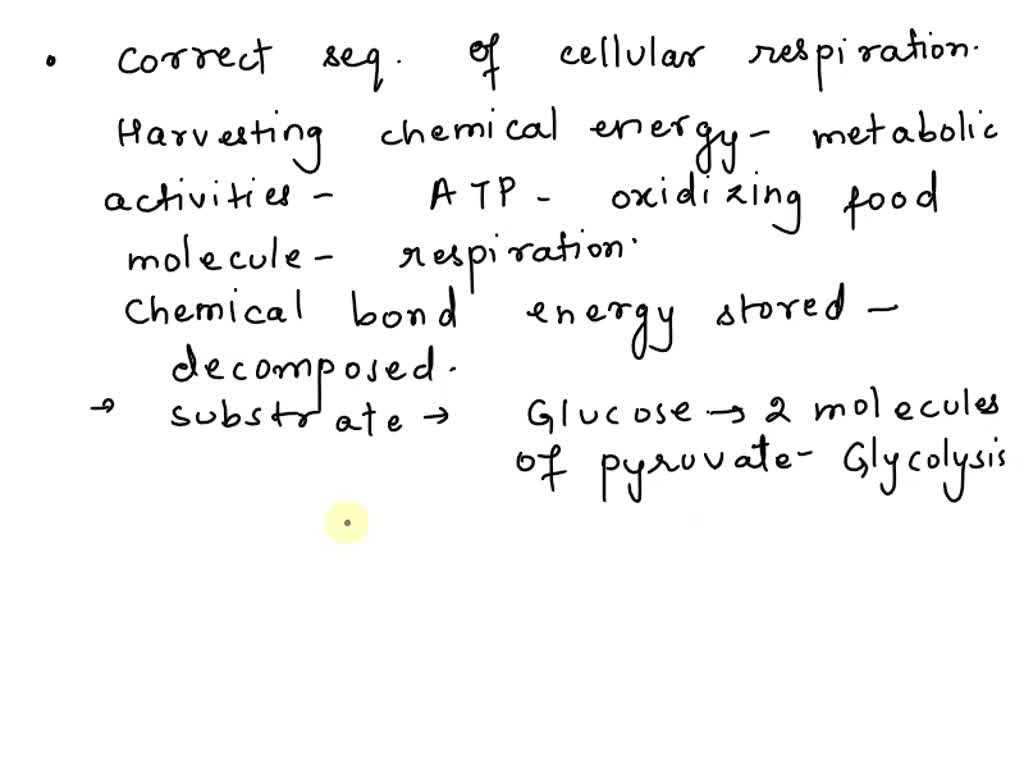 • Correct seq. of cellular respiration.
Harvesting chemical energy - metabolic
activities - ATP - oxidizing food
molecule - respiration.
Chemical bond energy stored -
decomposed.
→ substrate → Glucose → 2 molecules
of pyruvate - Glycolysis